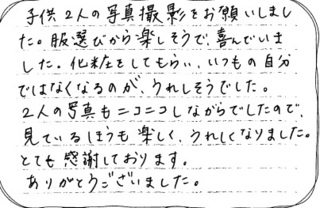 子供2人の写真撮影をお願いしまし
た。服選びから楽しそうで、喜んでいま
した。化粧をしてもらい、いつもの自分
ではなくなるのが、うれしそうでした。
2人の写真もニコニコしながらでしたので、
見ているほうも楽しく、うれしくなりました。
とても感謝しております。
ありがとうございました。